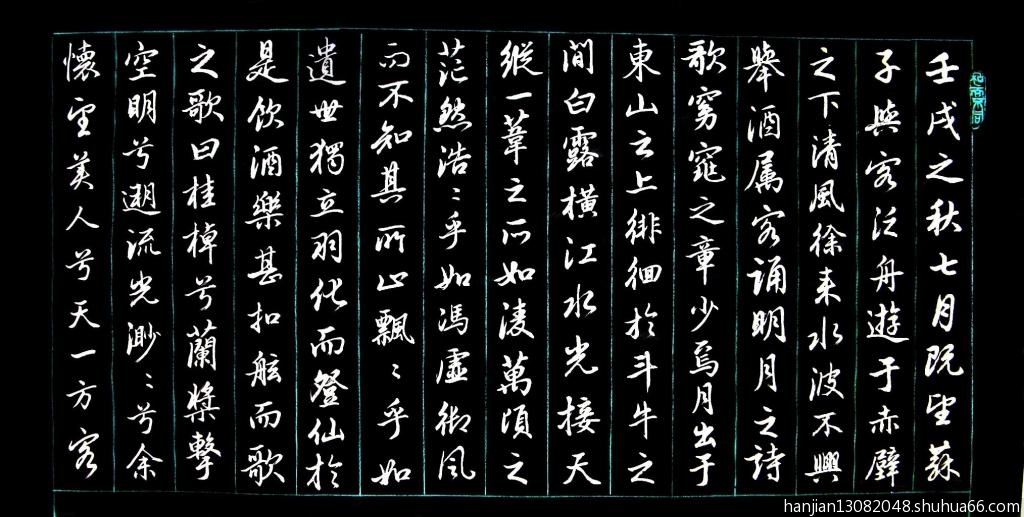 壬戌之秋七月既望蘇
子與客泛舟遊于赤壁
之下清風徐来水波不興
舉酒属客誦明月之詩
歌窈窕之章少焉月出于
東山之上徘徊於斗牛之
間白露横江水光接天
縱一葦之所如凌萬頃之
茫然浩〻乎如馮虛御風
而不知其所止飄〻乎如
遺世獨立羽化而登仙於
是飲酒樂甚扣舷而歌
之歌曰桂棹兮蘭槳擊
空明兮遡流光渺〻兮余
懷望美人兮天一方客
hanjian13082048.shuhua66.com